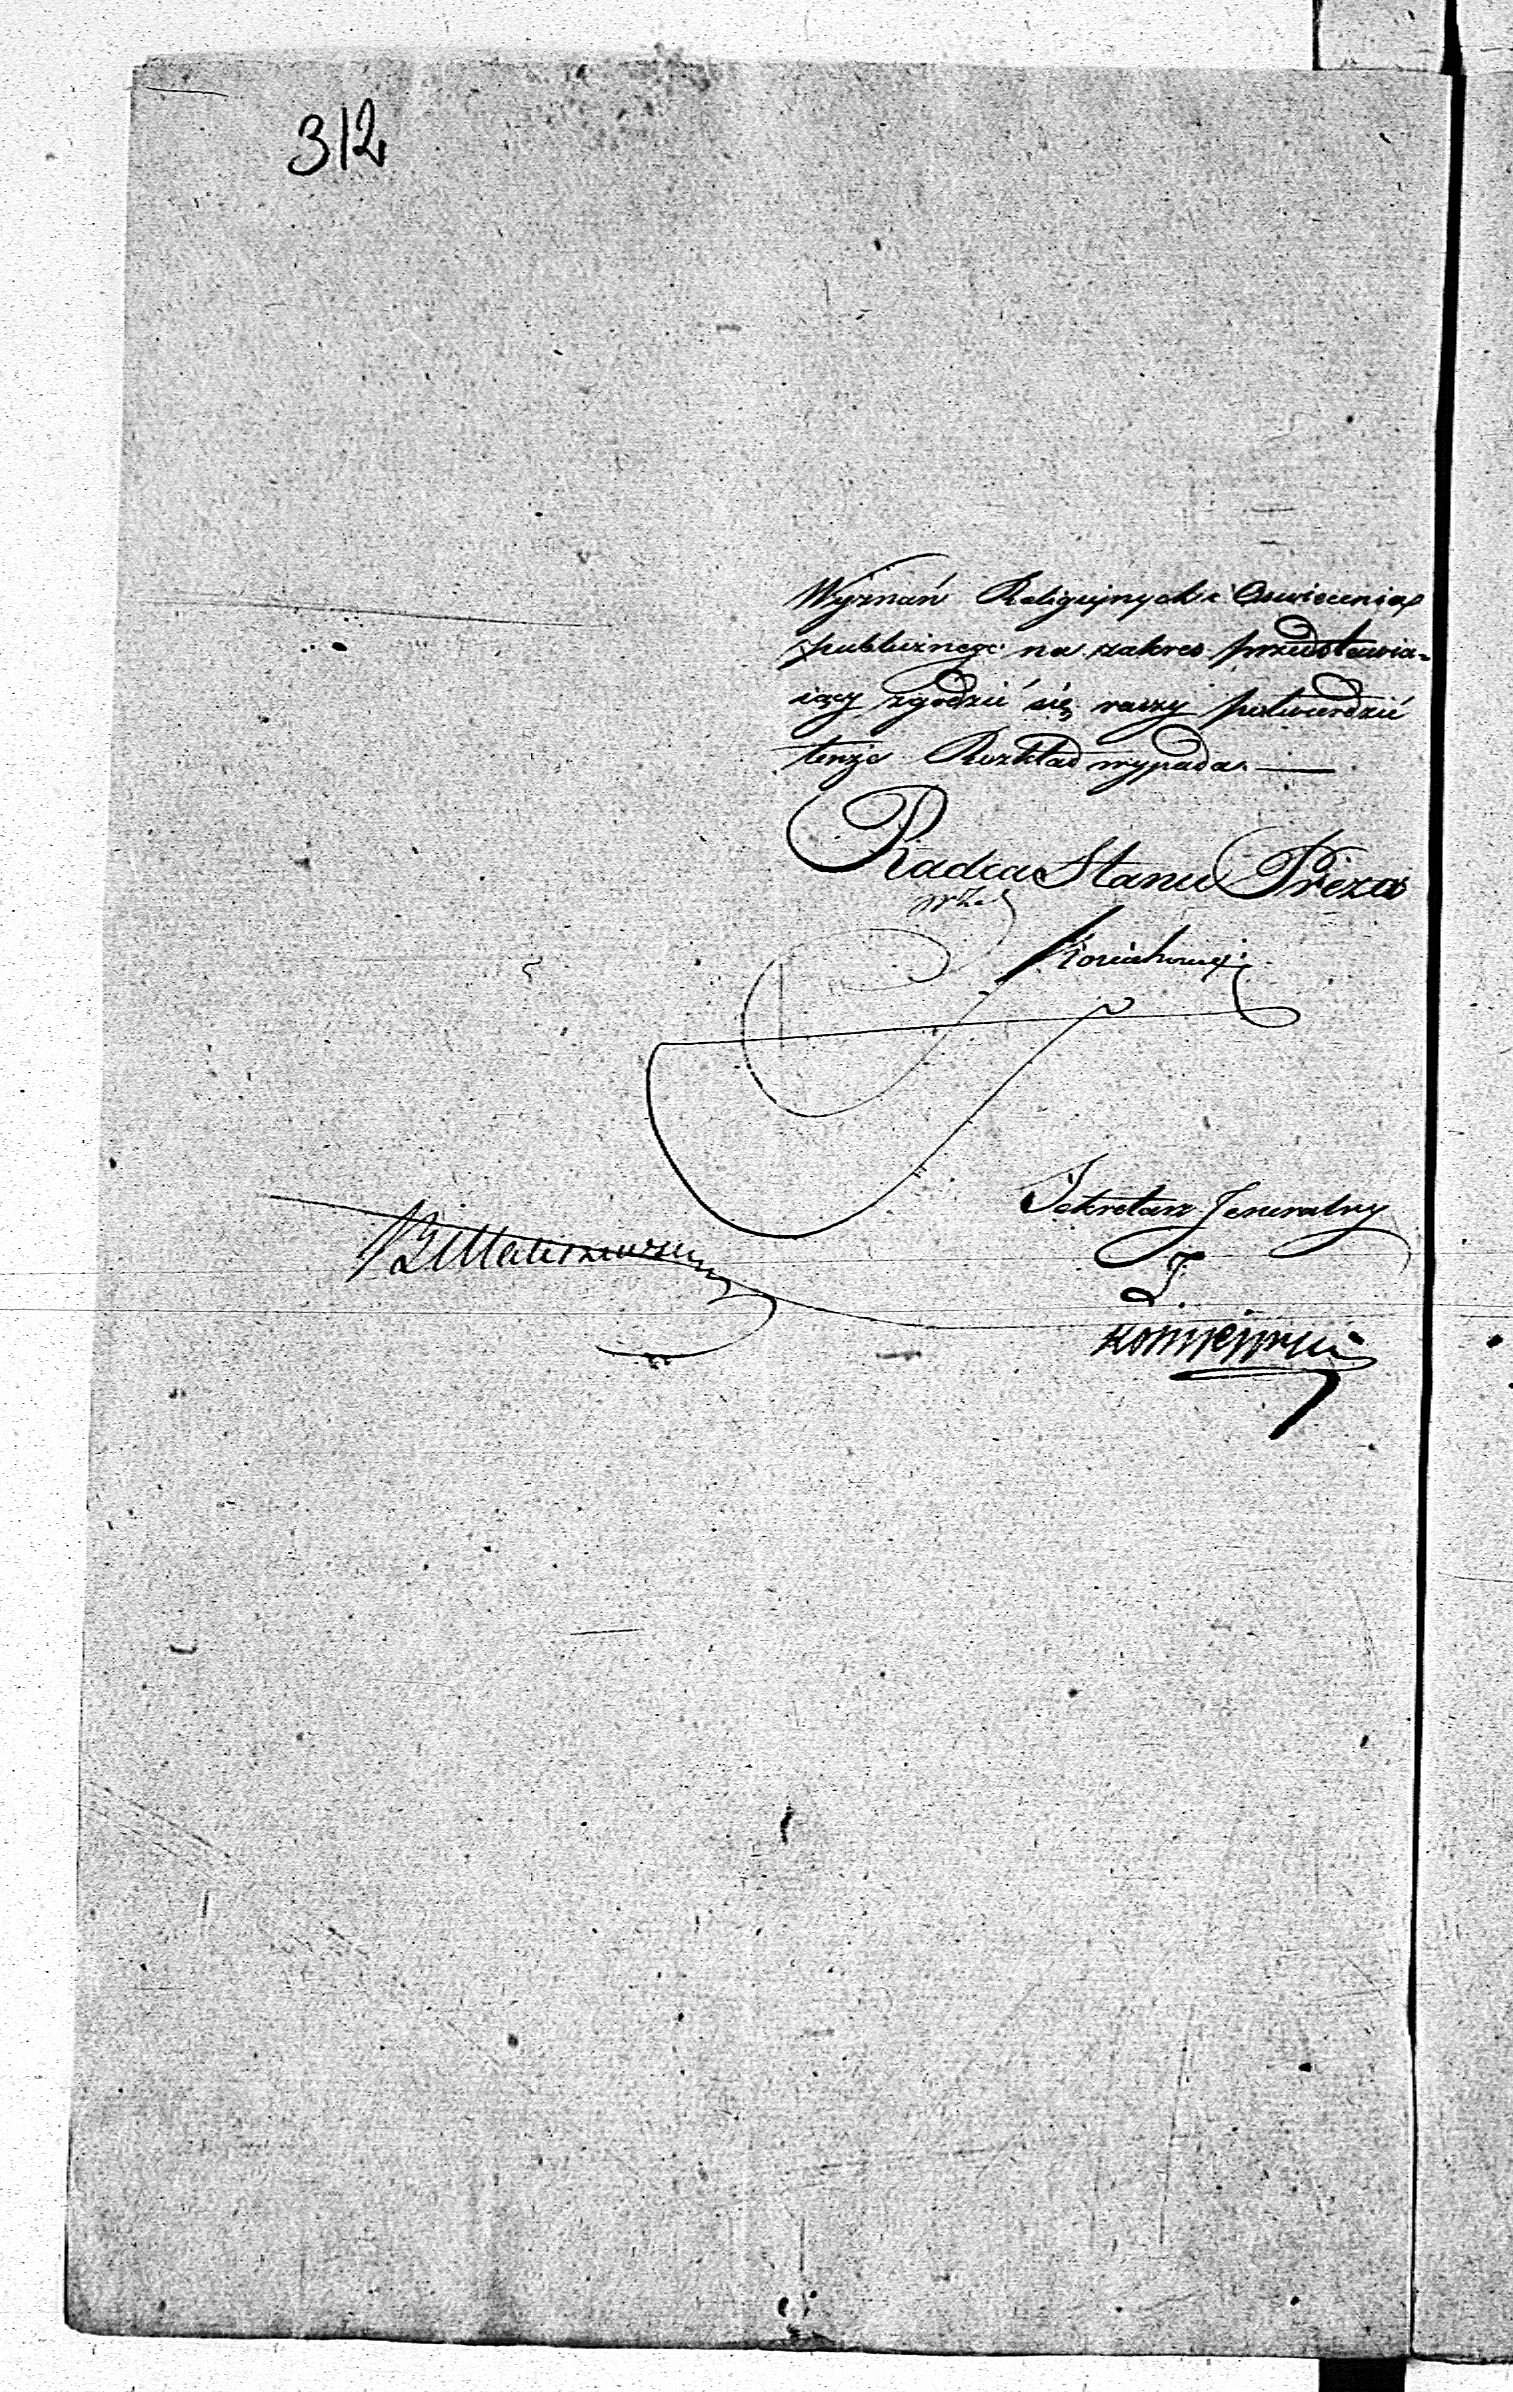 312
Wyznań Religijnych i Oświecenia
publicznego na zakres przedstawia-
iący zgodzić się raczy potwierdzić
tenże Rozkład wypada. —
Radca Stanu Prezes
Sekretarz Jeneralny